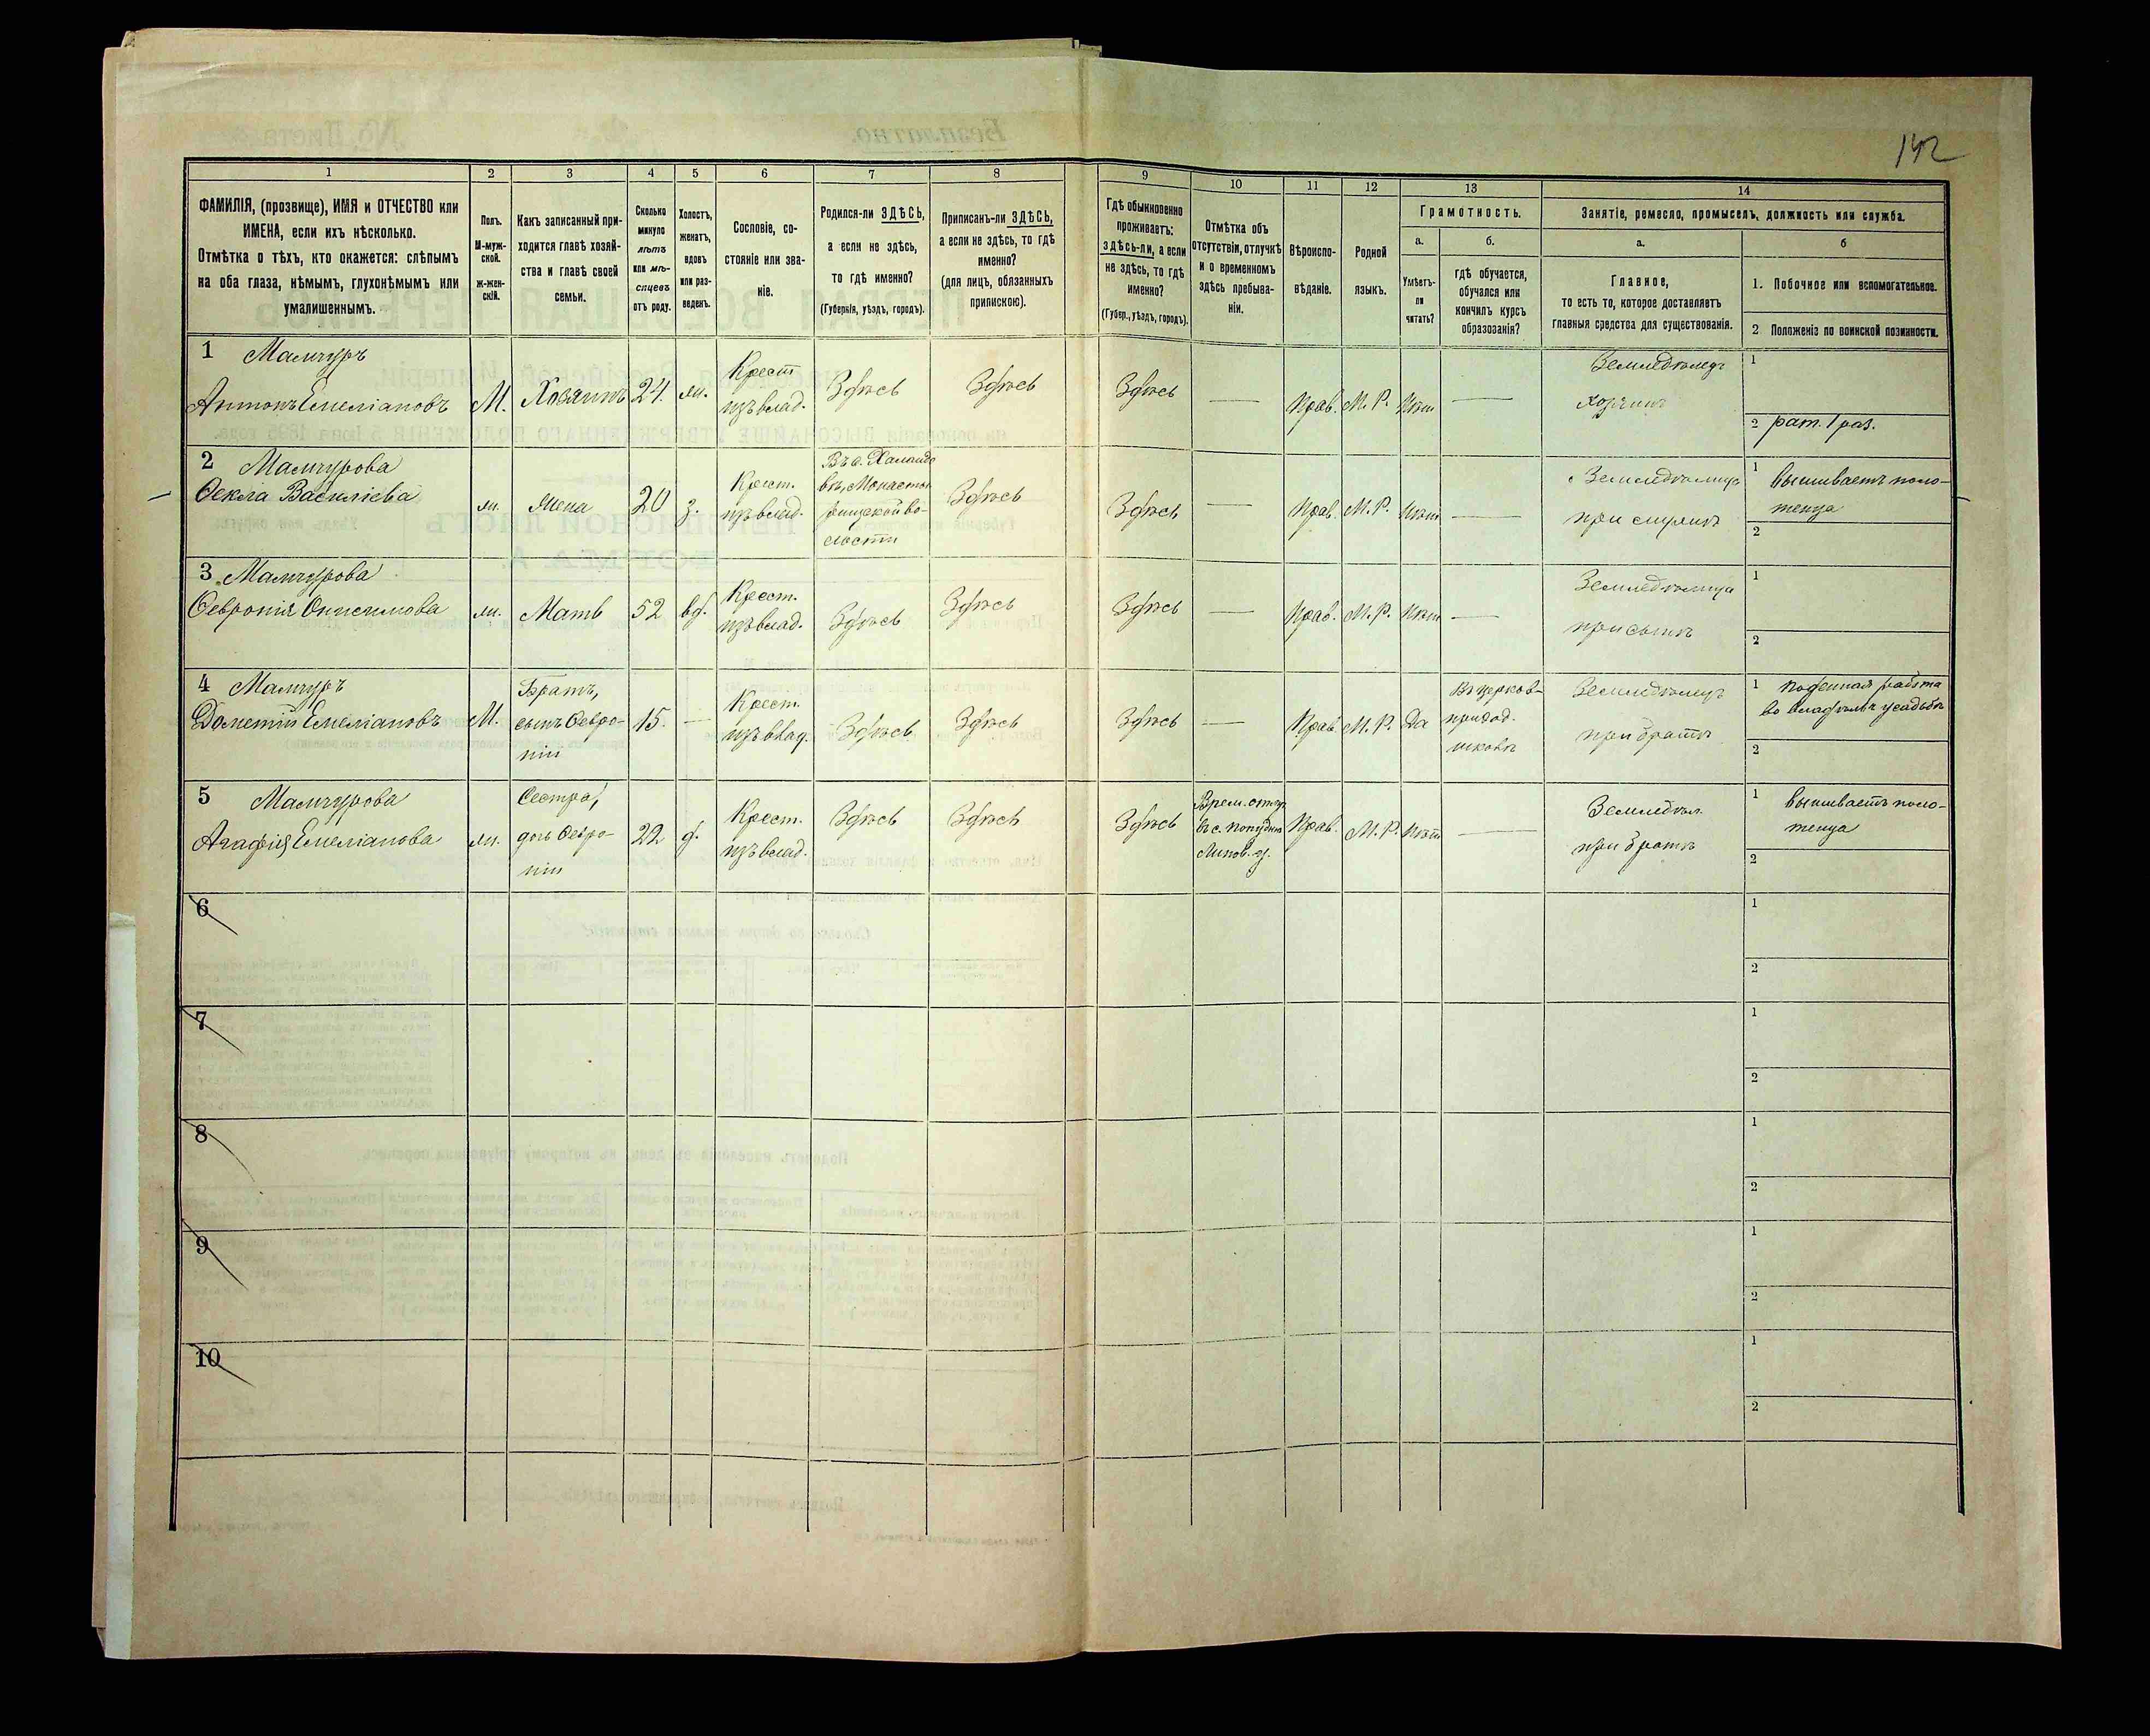 142
1
2
3
4
5
6
7
8
9
10
11
12
13
14
ФАМИЛІЯ, (прозвище), ИМЯ и ОТЧЕСТВО или
ИМЕНА, если ихъ нѣсколько.
Отмѣтка о тѣхъ, кто окажется: слѣпымъ
на оба глаза, нѣмымъ, глухонѣмымъ или
умалишеннымъ.
Полъ.
М-муж-
ской.
Ж-жен-
скій.
Какъ записанный при-
ходится главѣ хозяй-
ства и главѣ своей
семьи.
Сколько
минуло
лѣтъ
или мѣ-
сяцевъ
отъ роду.
Холостъ,
женатъ,
вдовъ
или раз-
веденъ.
Сословіе, со-
стояніе или зва-
ніе.
Родился-ли ЗДѢСЬ,
а если не здѣсь,
то гдѣ именно?
(Губернія, уѣздъ, городъ).
Приписанъ-ли ЗДѢСЬ,
а если не здѣсь, то гдѣ
именно?
(для лицъ, обязанныхъ
припискою).
Гдѣ обыкновенно
проживаетъ:
здѣсь-ли, а если
не здѣсь, то гдѣ
именно?
(Губер., уѣздъ, городъ).
Отмѣтка объ
отсутствіи, отлучкѣ
и о временномъ
здѣсь пребыва-
ніи.
Вѣроиспо-
вѣданіе.
Родной
языкъ.
Грамотность.
а.
Умѣетъ-
ли
читать?
б.
гдѣ обучается,
обучался или
кончилъ курсъ
образованія?
Занятіе, ремесло, промыселъ, должность или служба.
а.
Главное,
то есть то, которое доставляетъ
главныя средства для существованія.
б
1. Побочное или вспомогательное.
2 Положеніе по воинской повинности.
1 Мамчуръ
Антонъ Емеліановъ
М.
Хозяинъ
24
ж.
Крест
изъ влад.
Здѣсь
Здѣсь
Здѣсь
Прав.
М. Р.
Нѣт
Земледѣлецъ
хозяинъ
1
2 рат. 1 раз.
2 Мамчурова
Ѳекла Василіева
ж.
Жена
20
з.
Крест.
изъ влад.
волости
Здѣсь
Здѣсь
Прав.
М. Р.
Нѣт
Земледѣлица
при мужѣ
1 вышиваетъ поло-
тенца
2
3 Мамчурова
Ѳевронія Онисимова
ж.
Мать
52
вд.
Крест.
изъ влад.
Здѣсь
Здѣсь
Здѣсь
Прав.
М. Р.
Нѣт
Земледѣлица
при сынѣ
1
2
4 Мамчуръ
Дометій Емеліановъ
М.
Братъ,
сынъ Ѳевро-
ніи
15.
Крест.
изъ влад.
Здѣсь
Здѣсь
Здѣсь
Прав
М. Р.
Да
Въ церков-
приход.
школѣ
Земледѣлецъ
при братѣ
1 поденная работа
во владѣльч усадьбѣ
2
5 Мамчурова
Агафія Емеліанова
ж.
Сестра,
дочь Ѳевро-
ніи
22
д.
Крест.
изъ влад.
Здѣсь
Здѣсь
Здѣсь
Прав.
М. Р.
Нѣт
Земледѣл.
при братѣ
1 вышиваетъ поло-
тенца
2
6
1
2
7
1
2
8
1
2
9
1
2
10
1
2